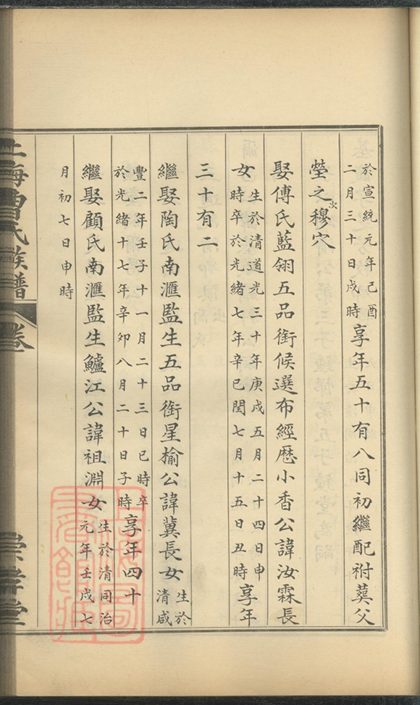 於宣統元年己酉
二月三十日戌時
享年五十有八同初繼配祔葬父
塋之穆穴
娶傅氏藍翎五品銜候選布經歷小香公諱汝霖長
女
生於清道光三十年庚戌五月二十四日申
時卒於光緒七年辛巳閏七月十五日丑時
享年
三十有二
繼娶陶氏南滙監生五品銜星榆公諱冀長女
生於
清咸
豐二年壬子十一月二十三日巳時卒
於光緒十七年辛卯八月二十日子時
享年四十
繼娶顧氏南滙監生鱸江公諱祖淵女
生於清同治
元年壬戌七
月初七日申時
上海曹氏族譜
卷
崇孝堂